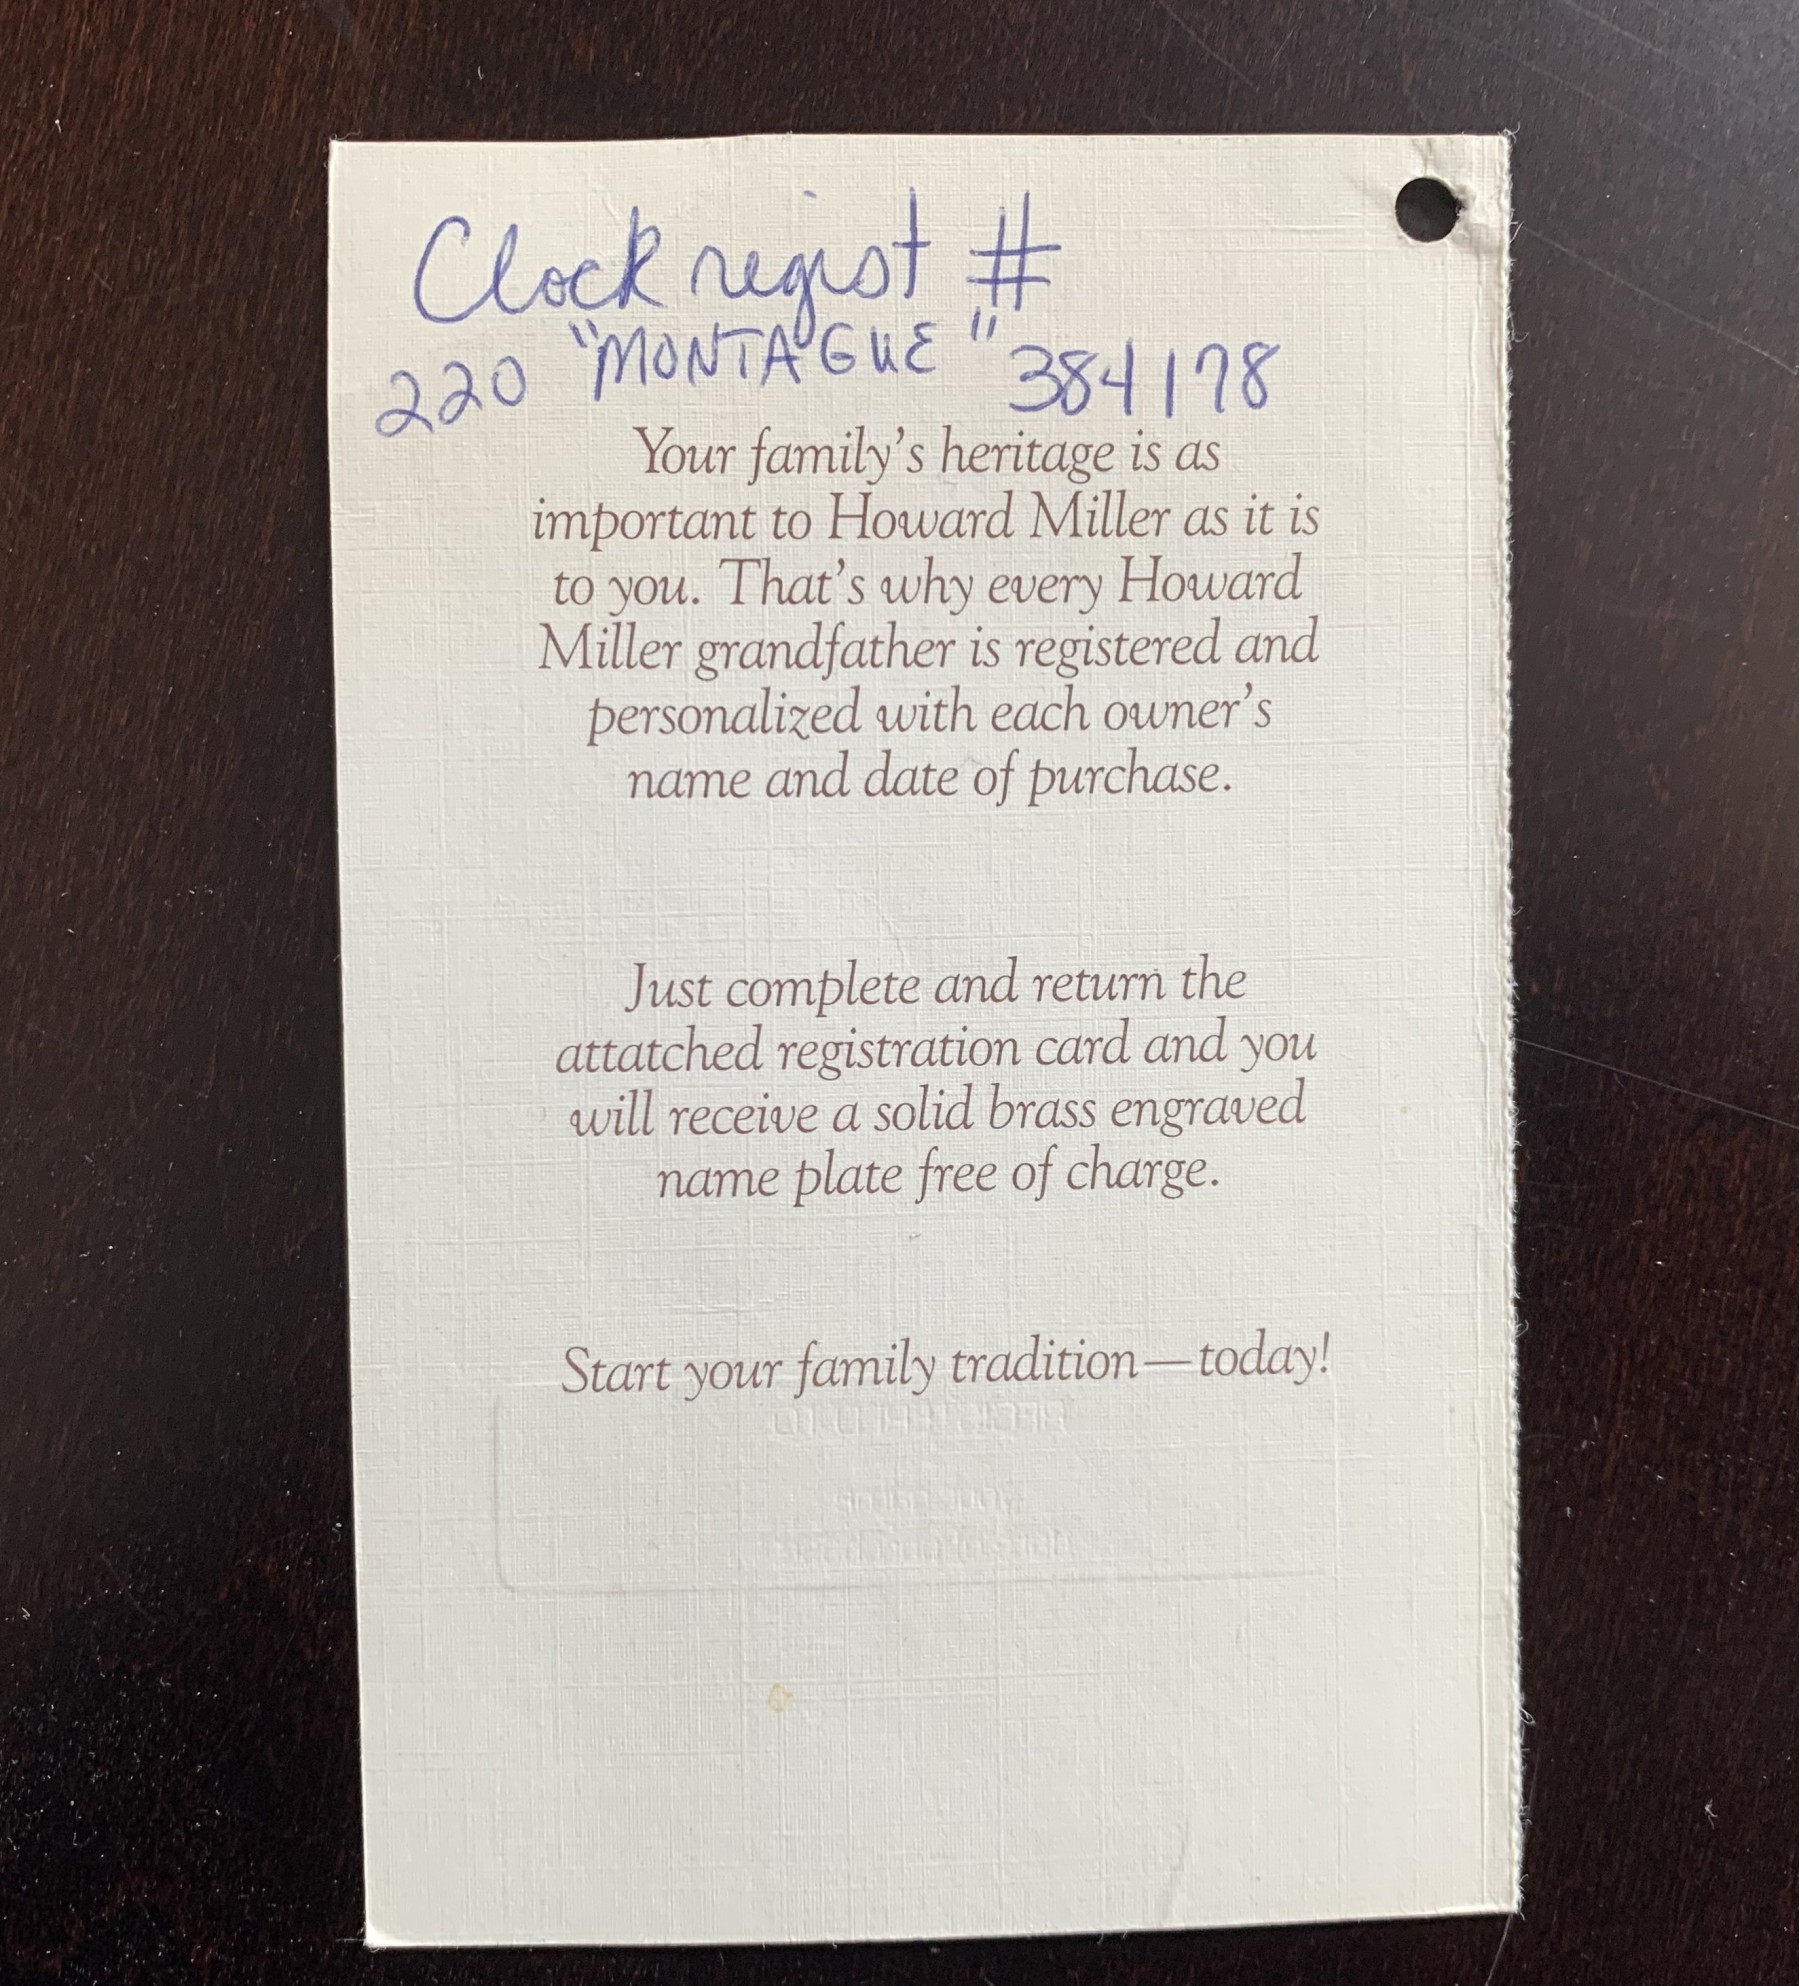 Clock regist #
220 "MONTAGUE" 384178
Your family's heritage is as
important to Howard Miller as it is
to you. That's why every Howard
Miller grandfather is registered and
personalized with each owner's
name and date of purchase.
Just complete and return the
attatched registration card and you
will receive a solid brass engraved
name plate free of charge.
Start your family tradition—today!